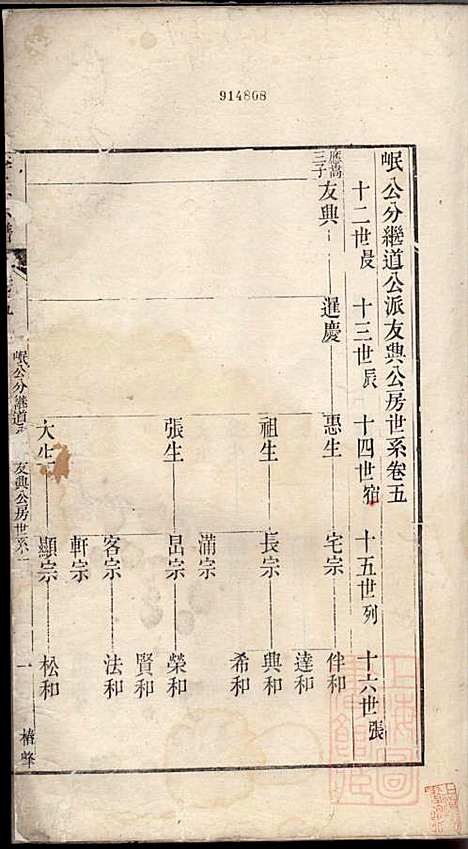 914808
岷公分繼道公派友典公房世系卷五
十二世昃 十三世辰 十四世宿 十五世列 十六世張
應嵩三子 友典 暹慶 惠生 宅宗 伴和
達和
祖生 長宗 典和
希和
滿宗
張生 昌宗 榮和
賢和
客宗 法和
軒宗
大生 顯宗 松和
岷公分繼道 友典公房世系
一
椿峰